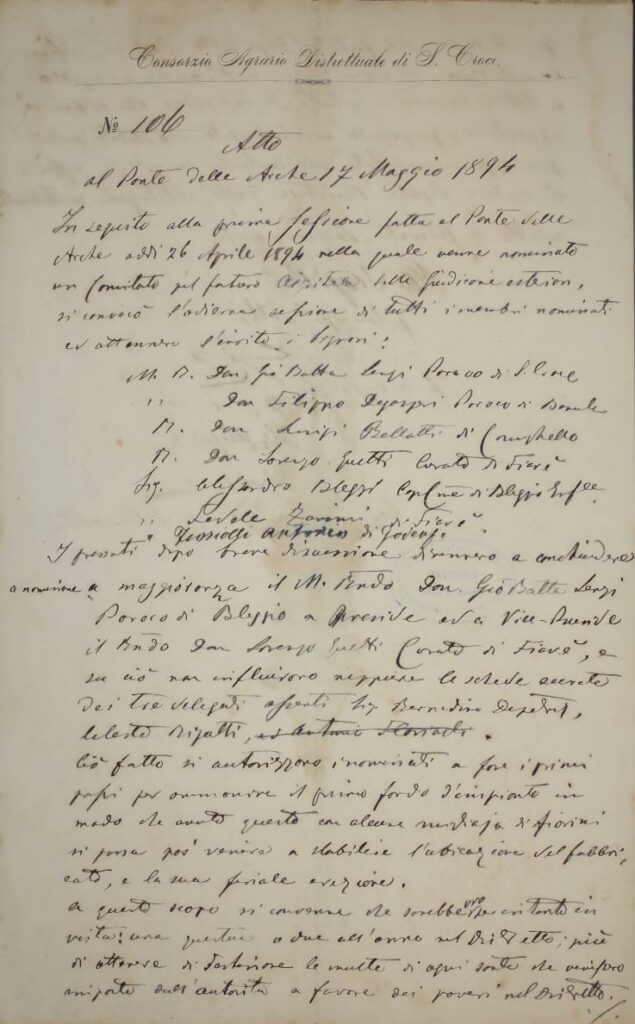 Consorzio Agrario Distrettuale di S. Croce.
№ 106
Atto
al Ponte delle Arche 17 Maggio 1894
In seguito alla prima sessione fatta al Ponte delle
Arche addì 26 Aprile 1894 nella quale venne nominato
un Comitato pel futuro Ospitale delle Giudicarie esteriori,
si convocò l'odierna sessione di tutti i membri nominati
ed attennero l'invito i Signori:
M. R. Don Gio Batta Lenzi Paroco di S. Croce
" Don Filippo Paroco di Banale
R. Don Luigi Bellotti di Comighello
R. Don Lorenzo Guetti Curato di Fiavè
Sig. Alessandro Bleggio
" Zanini di Fiavè
Antonio di Godenzo
I presenti dopo breve discussione divennero a conchiudere
a nominare a maggioranza il M. Rndo Don. Gio Batta Lenzi
Paroco di Bleggio a Preside ed a Vice-Preside
il Rndo Don Lorenzo Guetti Curato di Fiavè, e
su ciò non influirono neppure le schede secrete
dei tre delegati assenti Sig. Bernardino
Celeste Rigatti, ed Antonio.
Ciò fatto si autorizzaro i nominati a fare i primi
passi per ammanire il primo fondo d'impianto in
modo che avuto questo con alcune migliaja di fiorini
si possa poi venire a stabilire l'ubicazione del fabbri,
cato, e la sua erezione.
A questo scopo si convenne che sarebbero
vista: una questua o due all'anno nel Distretto; più
di ottenere di le multe di ogni sorte che venissero
imposte dall'autorità a favore dei poveri nel Distretto.